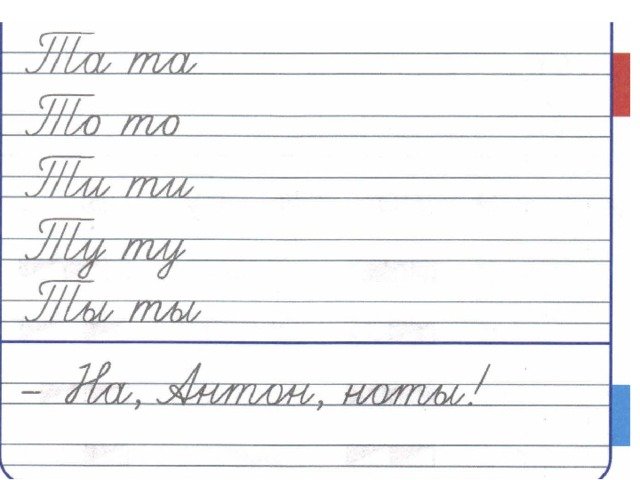 Та та
То то
Ти ти
Ту ту
Ты ты
– На, Антон, ноты!